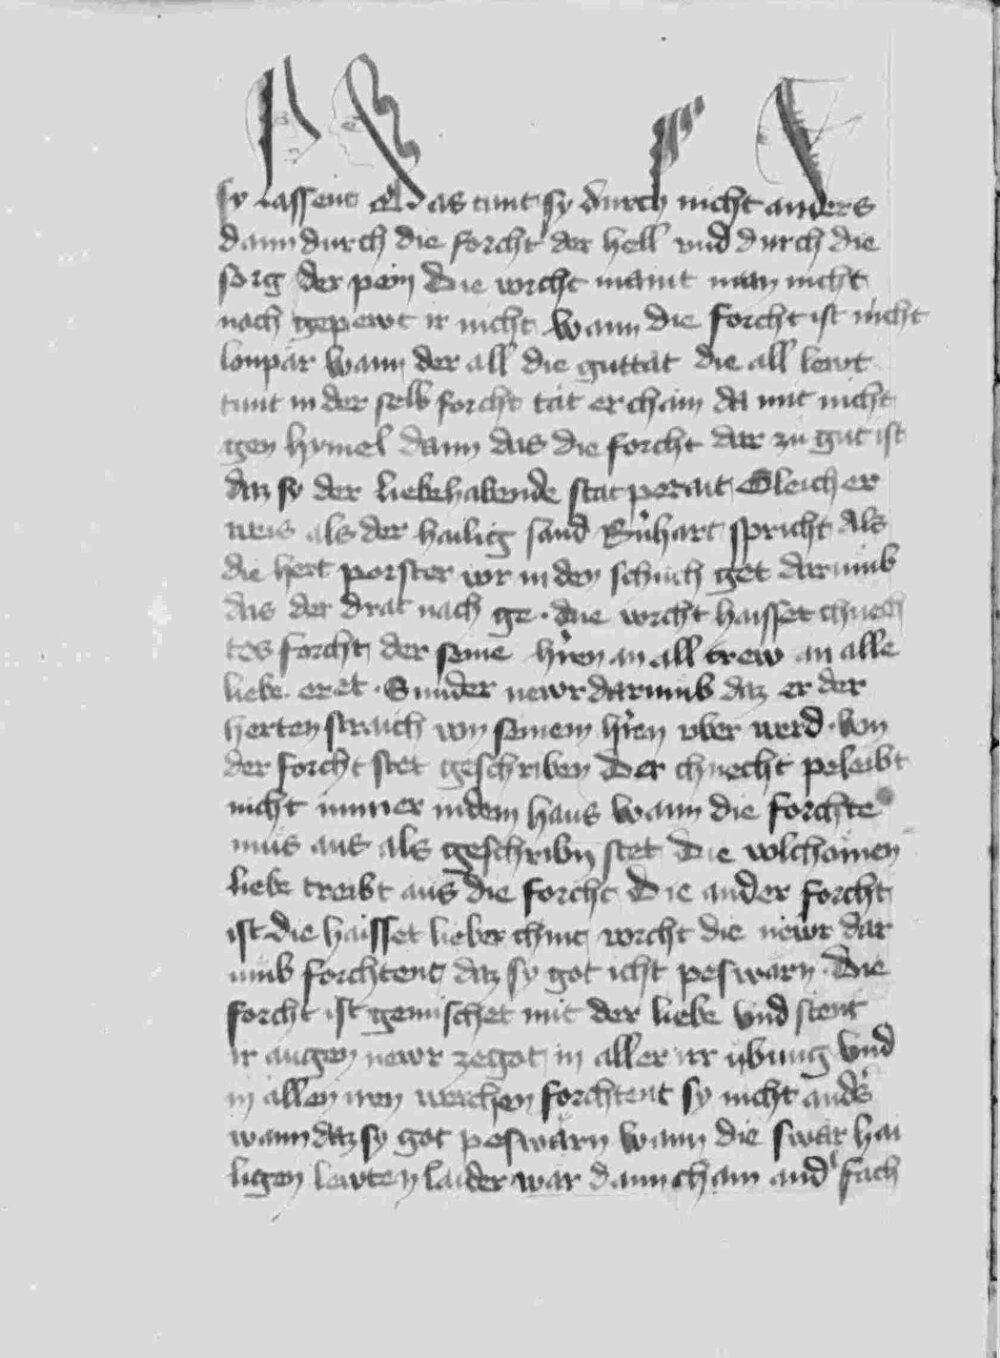 sy lassent Das tunt sy durch nicht anders
dann durch die forcht der hell vnd durch die
sorg der pein Die vorcht maint man nicht
noch gepewt ir nicht Wann die forcht ist nicht
lonpär Wann der all die guttät die all lewt
tunt in der selb forcht tät er cham da mit nicht
gen hymel dann das die forcht dar zů gut ist
daz sy der liebehabende stat perait Gleich er
weis als der hailig sand Bernhart spricht Als
die hert porster vor in den schuch get darumb
das der drat nach ge · die vorcht haisset chnech
tes forcht der seine herren an all trew an alle
liebe eret · Sunder newr darumb daz er der
herten straich von seinem herren vber werd · Von
der forcht stet geschriben Der chnecht peleibt
nicht immer in dem haus Wann die forchte
mus aus als geschribn stet Die volchomen
liebe treibt aus die forcht Die ander forcht
ist die haisset lieber chint vorcht die newr dar
umb forchtent daz sy got icht peswärn · Die
forcht ist gemischet mit der liebe Vnd stent
ir augen newr ze got in aller irr übung Vnd
in allen iren werchen forchtent sy nicht anders
wann daz sy got peswärn Wann die swär hai
ligen lewten laider wär dann cham ander sach